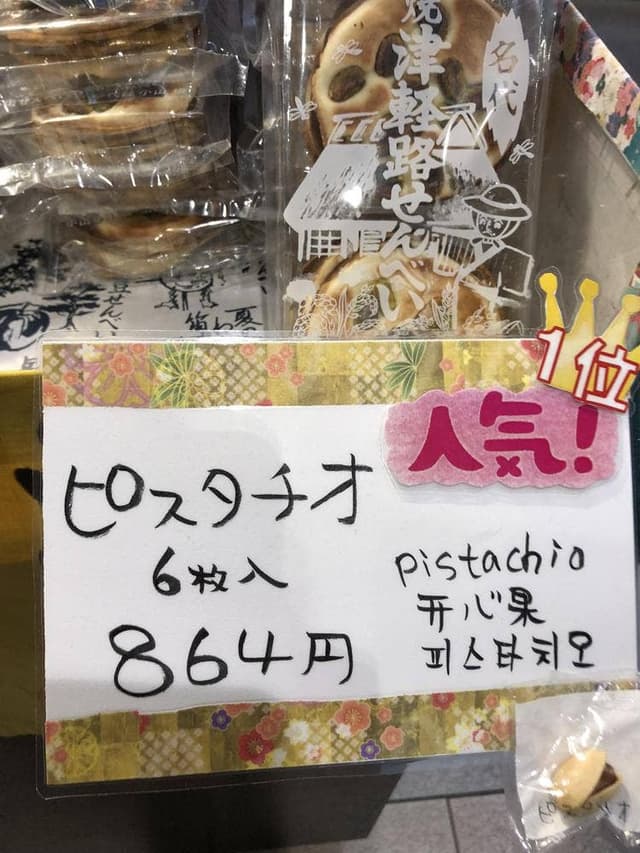 名代
焼津軽路せんべい
1位
人気!
ピスタチオ
6枚入
864円
pistachio
开心果
피스타치오